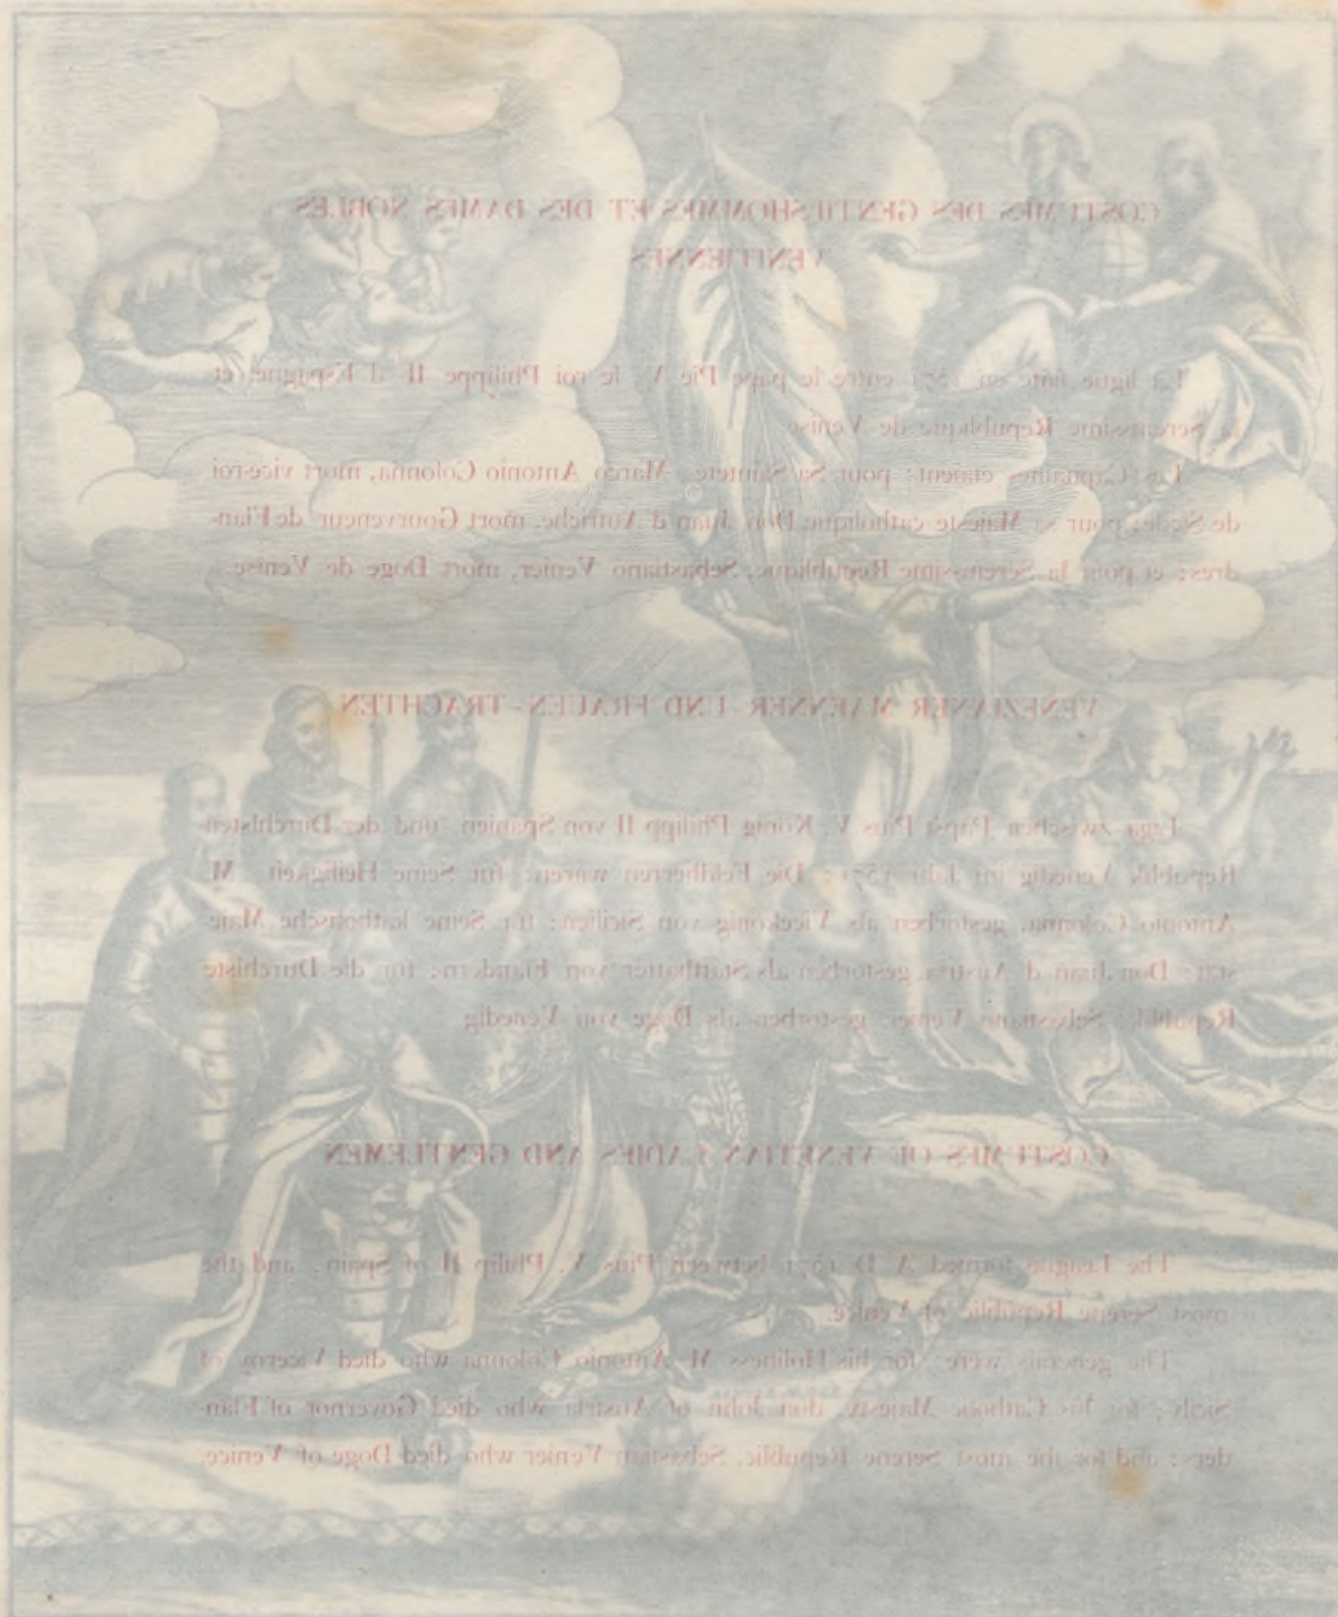 COSTUMES DES GENTILSHOMMES ET DES DAMES NOBLES
VENITIENNES
La ligue faite en 1571 entre le pape Pie V, le roi Philippe II d'Espagne, et
la Serenissime Republique de Venise.
Les Capitaines etaient: pour Sa Saintete, Marco Antonio Colonna, mort vice-roi
de Sicile; pour sa Majeste catholique Don Juan d'Autriche, mort Gourverneur de Flan-
dres; et pour la Serenissime Republique, Sebastiano Venier, mort Doge de Venise.
VENEZIANER MAENNER UND FRAUEN-TRACHTEN
Liga zwischen Papst Pius V, König Philipp II von Spanien und der Durchlsten
Republik Venedig im Jahr 1571: Die Feldherren waren: für Seine Heiligkeit M.
Antonio Colonna, gestorben als Vicekönig von Sicilien; für Seine katholische Maie-
stät: Don Juan d'Austria gestorben als Statthalter von Flandern; für die Durchlste
Republik: Sebastiano Venier, gestorben als Doge von Venedig.
COSTUMES OF VENETIAN LADIES AND GENTLEMEN
The League formed A D 1571 between Pius V, Philip II of Spain, and the
most Serene Republic of Venice.
The generals were: for his Holiness M. Antonio Colonna who died Viceroy of
Sicily; for his Catholic Majesty, don John of Austria who died Governor of Flan-
ders; and for the most Serene Republic, Sebastian Venier who died Doge of Venice.